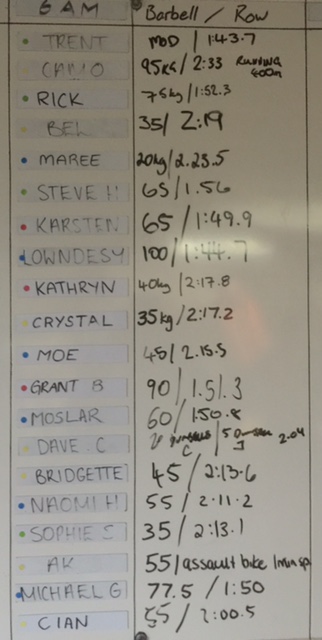 6 AM Barbell / Row
TRENT MOD / 1:43.7
CAMO 95KG / 2:33 RUNNING 400m
RICK 75kg / 1:52.3
BEL 35 / 2:19
MAREE 20kg / 2.23.5
STEVE H 65 / 1.56
KARSTEN 65 / 1:49.9
LOWNDESY 100 / 1:44.7
KATHRYN 40kg / 2:17.8
CRYSTAL 35kg / 2:17.2
MOE 45 / 2.15.5
GRANT B 90 / 1.51.3
MOSLAR 60 / 1:50.8
DAVE.C 2.04
BRIDGETTE 45 / 2:13.6
NAOMI H 55 / 2.11.2
SOPHIE S 35 / 2:13.1
AK 55 / assault bike 1min sp
MICHAEL G 77.5 / 1:50
CIAN 55 / 2:00.5